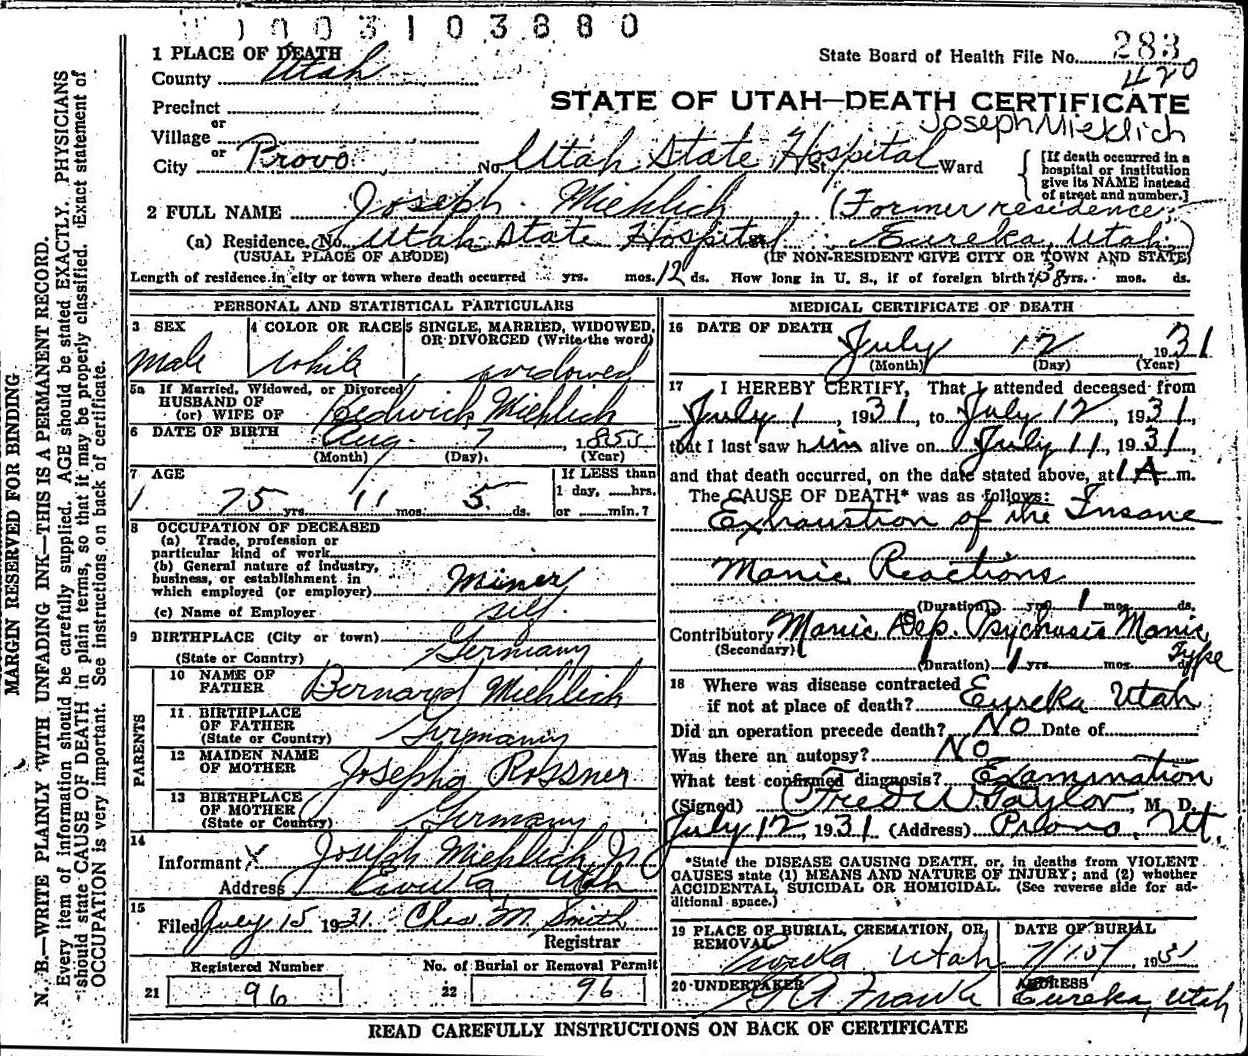 1003103880
1 PLACE OF DEATH
County Utah
State Board of Health File No. 283
420
Precinct
or
Village
or
City Provo No. Utah State Hospital St. Ward
STATE OF UTAH—DEATH CERTIFICATE
Joseph Mieklich
[If death occurred in a
hospital or institution
give its NAME instead
of street and number.]
2 FULL NAME Joseph Miehlich (Former residence
(a) Residence. (No. Utah State Hospital Eureka, Utah)
(USUAL PLACE OF ABODE) (IF NON-RESIDENT GIVE CITY OR TOWN AND STATE)
Length of residence in city or town where death occurred yrs. mos. 12 ds. How long in U. S., if of foreign birth? 38 yrs. mos. ds.
PERSONAL AND STATISTICAL PARTICULARS
3 SEX
Male
4 COLOR OR RACE
White
5 SINGLE, MARRIED, WIDOWED,
OR DIVORCED (Write the word)
widowed
5a If Married, Widowed, or Divorced
HUSBAND OF
(or) WIFE OF Hedwick Miehlich
6 DATE OF BIRTH Aug. 7, 1855
(Month) (Day) (Year)
7 AGE
75 yrs. 11 mos. 5 ds.
If LESS than
1 day, hrs.
or min.?
8 OCCUPATION OF DECEASED
(a) Trade, profession or
particular kind of work
(b) General nature of industry,
business, or establishment in
which employed (or employer) Miner
(c) Name of Employer self.
9 BIRTHPLACE (City or town)
(State or Country) Germany
PARENTS
10 NAME OF
FATHER Bernard Miehlich
11 BIRTHPLACE
OF FATHER
(State or Country) Germany
12 MAIDEN NAME
OF MOTHER Josepha Rossner
13 BIRTHPLACE
OF MOTHER
(State or Country) Germany
14
Informant X Joseph Miehlich Jr
Address Eureka, Utah
15
Filed July 15 1931. Chas. M. Smith
Registrar
Registered Number
21 96
No. of Burial or Removal Permit
22 96
MEDICAL CERTIFICATE OF DEATH
16 DATE OF DEATH
July 12 1931
(Month) (Day) (Year)
17 I HEREBY CERTIFY, That I attended deceased from
July 1, 1931 to July 12, 1931,
that I last saw him alive on July 11, 1931
and that death occurred, on the date stated above, at 1 A m.
The CAUSE OF DEATH* was as follows:
Exhaustion of the Insane
Manic Reactions
(Duration) yrs. 1 mos. ds.
Contributory Manic Dep. Psychosis Manic
(Secondary) Type
(Duration) 1 yrs. mos. ds.
18 Where was disease contracted
if not at place of death? Eureka Utah
Did an operation precede death? No Date of
Was there an autopsy? No
What test confirmed diagnosis? Examination
(Signed) Fred W Taylor, M. D.
July 12, 1931 (Address) Provo, Ut.
*State the DISEASE CAUSING DEATH, or, in deaths from VIOLENT
CAUSES state (1) MEANS AND NATURE OF INJURY; and (2) whether
ACCIDENTAL, SUICIDAL OR HOMICIDAL. (See reverse side for ad-
ditional space.)
19 PLACE OF BURIAL, CREMATION, OR
REMOVAL
Eureka Utah
DATE OF BURIAL
7/15/ 1931
20 UNDERTAKER
ADDRESS
Eureka, Utah
READ CAREFULLY INSTRUCTIONS ON BACK OF CERTIFICATE
MARGIN RESERVED FOR BINDING
N. B.—WRITE PLAINLY WITH UNFADING INK—THIS IS A PERMANENT RECORD.
Every item of information should be carefully supplied. AGE should be stated EXACTLY. PHYSICIANS
should state CAUSE OF DEATH in plain terms, so that it may be properly classified. Exact statement of
OCCUPATION is very important. See instructions on back of certificate.